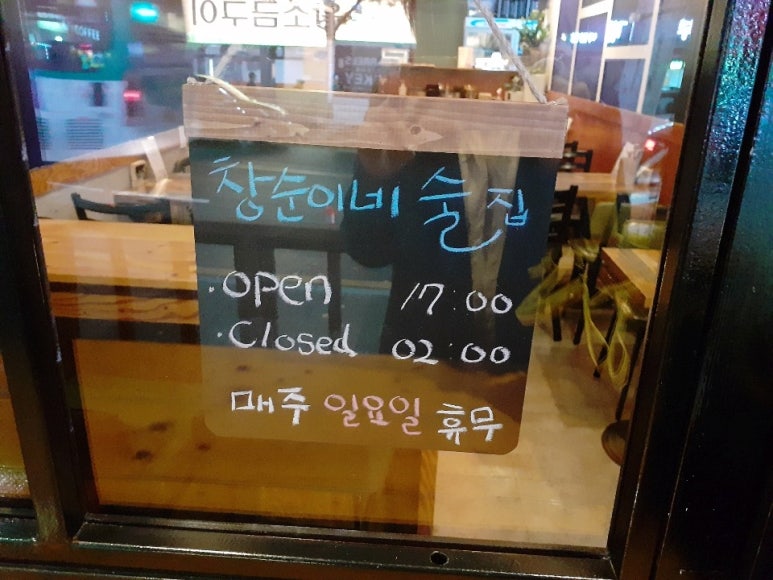 창순이네 술집
· open 17:00
· Closed 02:00
매주 일요일 휴무